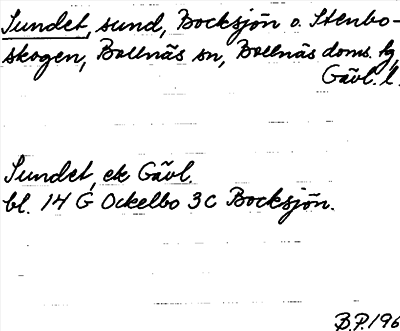 Sundet, sund, Bocksjön o. Stenbo-
skogen, Bollnäs sn, Bollnäs doms. tg,
Gävl. l.
Sundet, ek Gävl.
bl. 14 G Ockelbo 3c Bocksjön.
B.P. 196